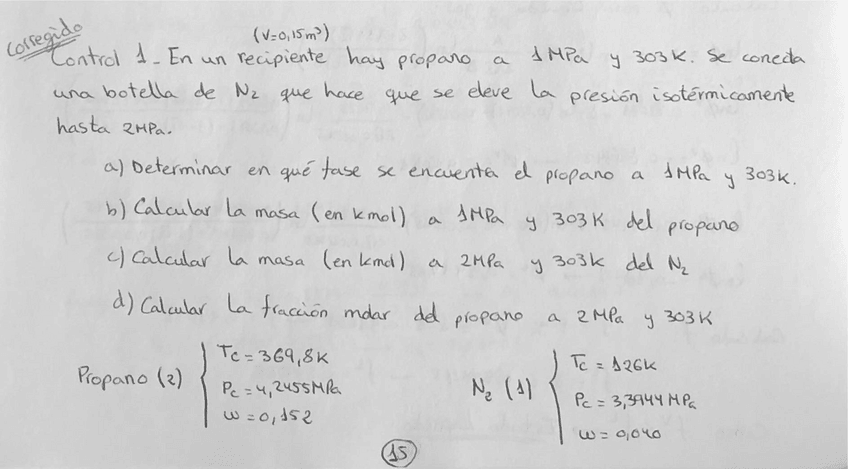 Corregido
(V=0,15m³)
Control 1_ En un recipiente hay propano a 1MPa y 303K. Se conecta
una botella de N₂ que hace que se eleve la presión isotérmicamente
hasta 2MPa.
a) Determinar en qué fase se encuentra el propano a 1MPa y 303K.
b) Calcular la masa (en kmol) a 1MPa y 303K del propano
c) Calcular la masa (en kmol) a 2MPa y 303K del N₂
d) Calcular la fracción molar del propano a 2MPa y 303K
Propano (2) { Tc = 369,8K
Pc = 4,2455MPa
w = 0,152
N₂ (1) { Tc = 126K
Pc = 3,3944MPa
w = 0,040
15